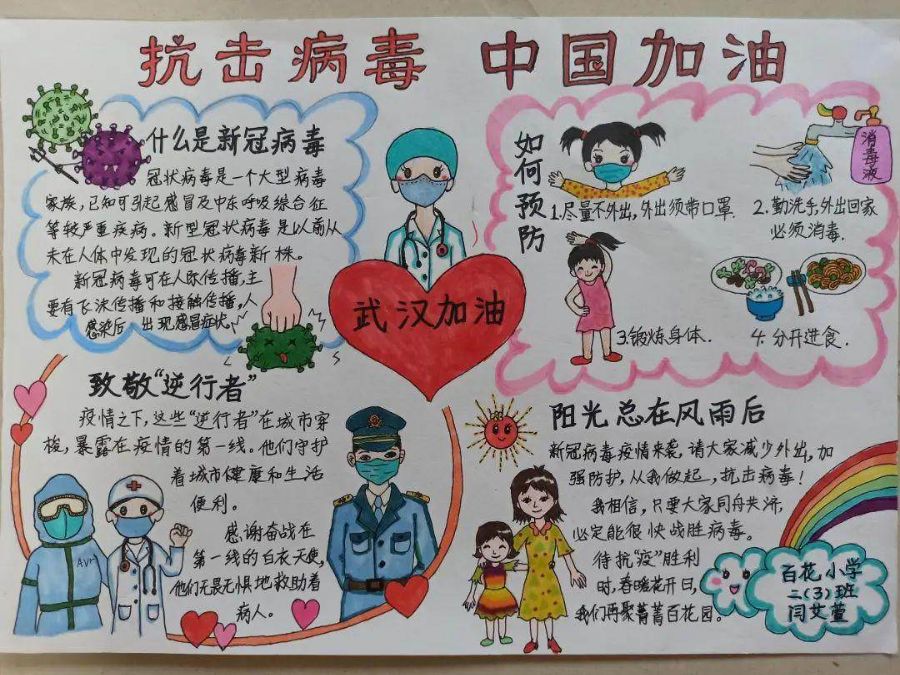 抗击病毒 中国加油
什么是新冠病毒
冠状病毒是一个大型病毒
家族,已知可引起感冒及中东呼吸综合征
等较严重疾病。新型冠状病毒是以前从
未在人体中发现的冠状病毒新株。
新冠病毒可在人际传播,主
要有飞沫传播和接触传播,人
感染后 出现感冒症状。
武汉加油
如何预防
1.尽量不外出,外出须带口罩.
消毒液
2.勤洗手,外出回家
必须消毒.
3.锻炼身体.
4.分开进食.
致敬“逆行者”
疫情之下,这些“逆行者”在城市穿
梭,暴露在疫情的第一线。他们守护
着城市健康和生活
便利。
感谢奋战在
第一线的白衣天使,
他们无畏无惧地救助着
病人。
阳光总在风雨后
新冠病毒疫情来袭,请大家减少外出,加
强防护,从我做起,抗击病毒!
我相信,只要大家同舟共济,
必定能很快战胜病毒。
待抗“疫”胜利
时,春暖花开日,
我们再聚菁菁百花园。
百花小学
二(3)班
闫艾萱